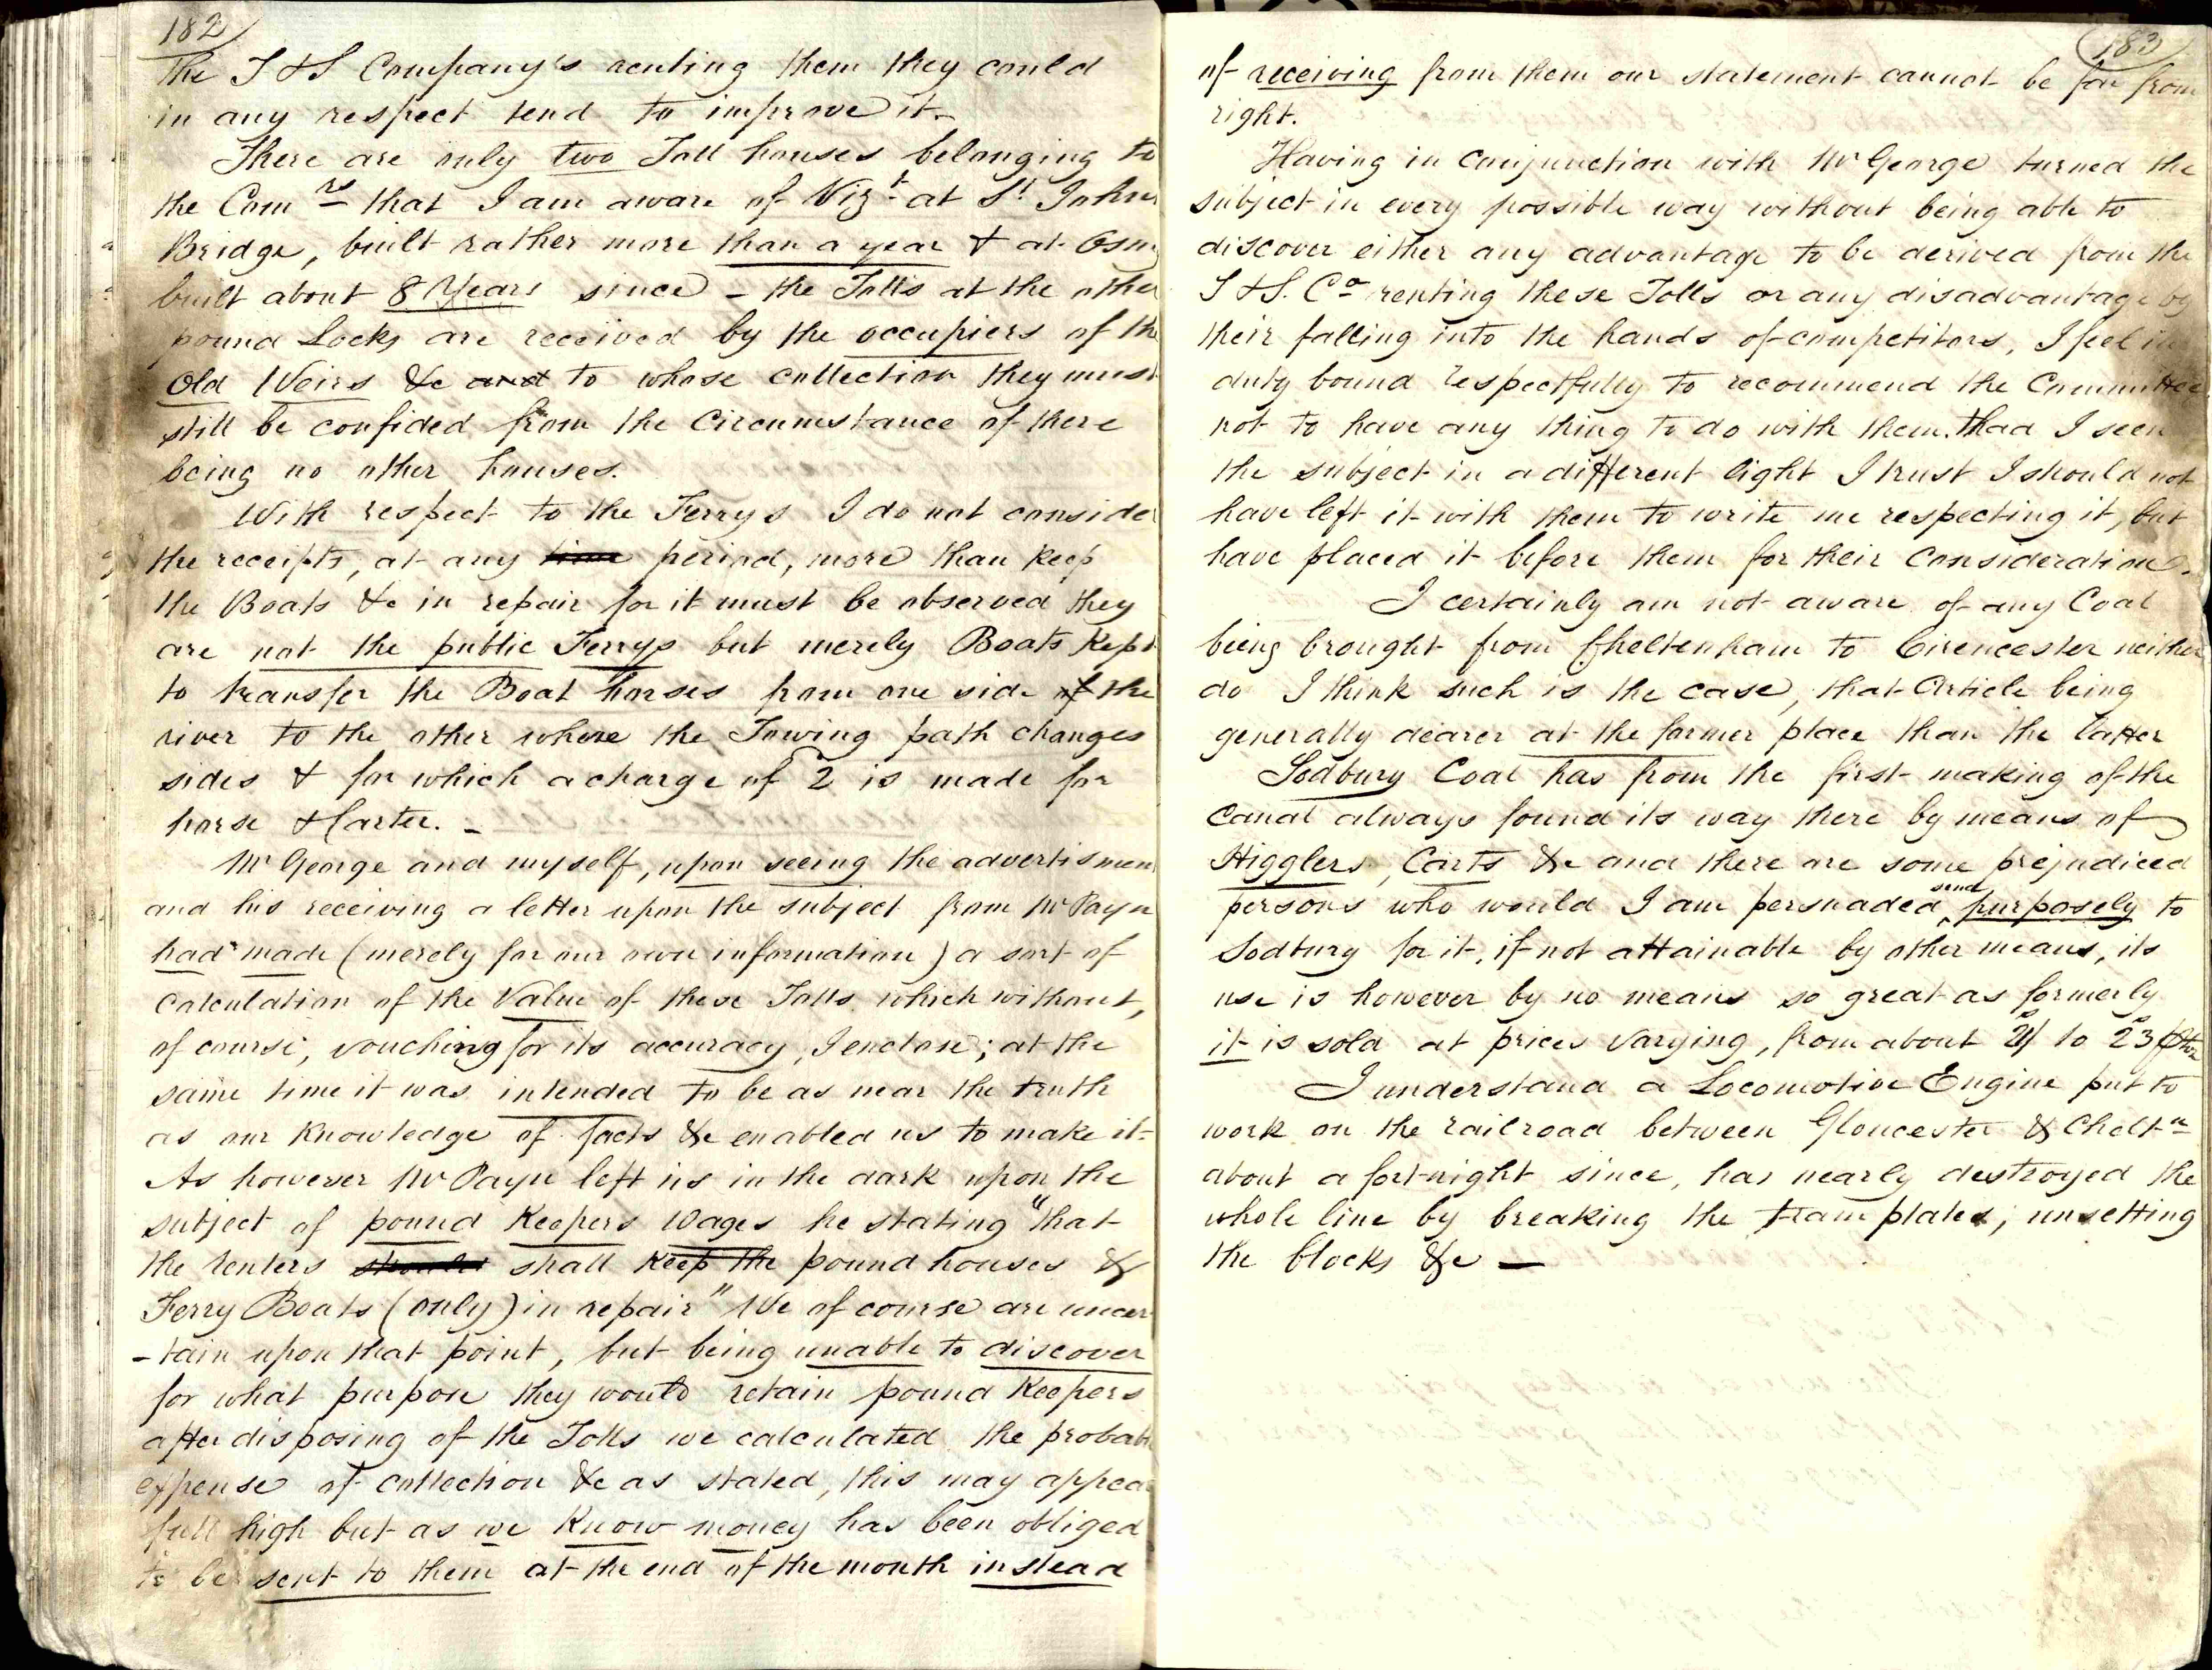 182
The T & S Company's renting them they could
in any respect tend to improve it.
There are only two Toll houses belonging to
the Com.rs that I am aware of Vizt. at St. Johns
Bridge, built rather more than a year & at Osn
built about 8 Years since - the Tolls at the other
pound Locks are received by the occupiers of th
Old Weirs &c and to whose collection they must
still be confided from the Circumstance of there
being no other houses.
With respect to the Ferrys I do not conside
the receipts, at any time period, more than keep
the Boats &c in repair for it must be observed they
are not the public Ferrys but merely Boats kept
to transfer the Boat horses from one side of the
river to the other where the Towing path changes
sides & for which a charge of 2 is made for
horse & Carter. -
Mr George and myself, upon seeing the advertismen
and his receiving a letter upon the subject from Mr Payn
had made (merely for our own information) a sort of
Calculation of the Value of these Tolls which without,
of course, vouching for its accuracy, I enclose; at the
same time it was intended to be as near the truth
as our knowledge of facts &c enabled us to make it-
As however Mr Payn left us in the dark upon the
subject of pound Keepers Wages he stating "that
the renters should shall keep the pound houses &
Ferry Boats (only) in repair" We of course are uncer
-tain upon that point, but being unable to discover
for what purpose they would retain pound Keepers
after disposing of the Tolls we calculated the probab
expense of collection &c as stated, this may appea
full high but as we know money has been obliged
to be sent to them at the end of the month instead
183
of receiving from them our statement cannot be far from
right.
Having in conjunction with Mr George turned the
subject in every possible way without being able to
discover either any advantage to be derived from the
T & S. Co. renting these Tolls or any disadvantage by
their falling into the hands of competitors, I feel in
duty bound respectfully to recommend the Committee
not to have any thing to do with them. Had I seen
the subject in a different light I trust I should not
have left it with them to write me respecting it, but
have placed it before them for their Consideration.
I certainly am not aware of any Coal
being brought from Cheltenham to Cirencester neither
do I think such is the case, that Article being
generally dearer at the former place than the latter
Sodbury Coal has from the first making of the
Canal always found its way there by means of
Higglers, Carts &c and there are some prejudiced
persons who would I am persuaded send purposely to
Sodbury for it, if not attainable by other means, its
use is however by no means so great as formerly
it is sold at prices varying, from about 21 to 23
I understand a Locomotive Engine put to
work on the railroad between Gloucester & Chelt.n
about a fort-night since, has nearly destroyed the
whole line by breaking the tram plates, unsetting
the blocks &c —